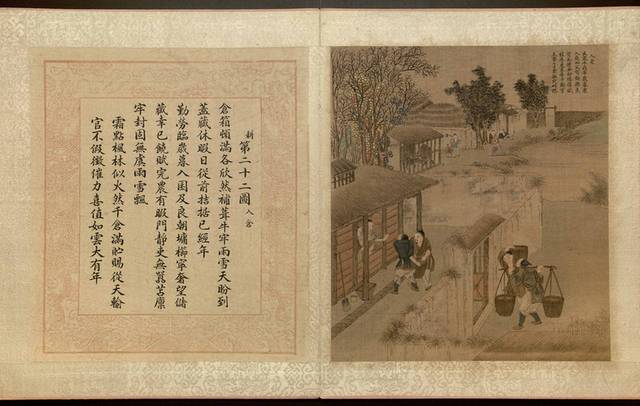 耕第二十二圖入倉
倉箱頓滿各欣然補葺牛牢雨雪天盼到
蓋藏休暇日從前拮据已經年
勤勞臨歲暮入囷及良朝墉櫛寧奢望儲
藏幸已饒賦完農有暇門靜吏無囂苫廩
牢封固無虞雨雪飄
霜點楓林似火然千倉滿貯賜從天輸
官不假徵催力喜值如雲大有年
入倉